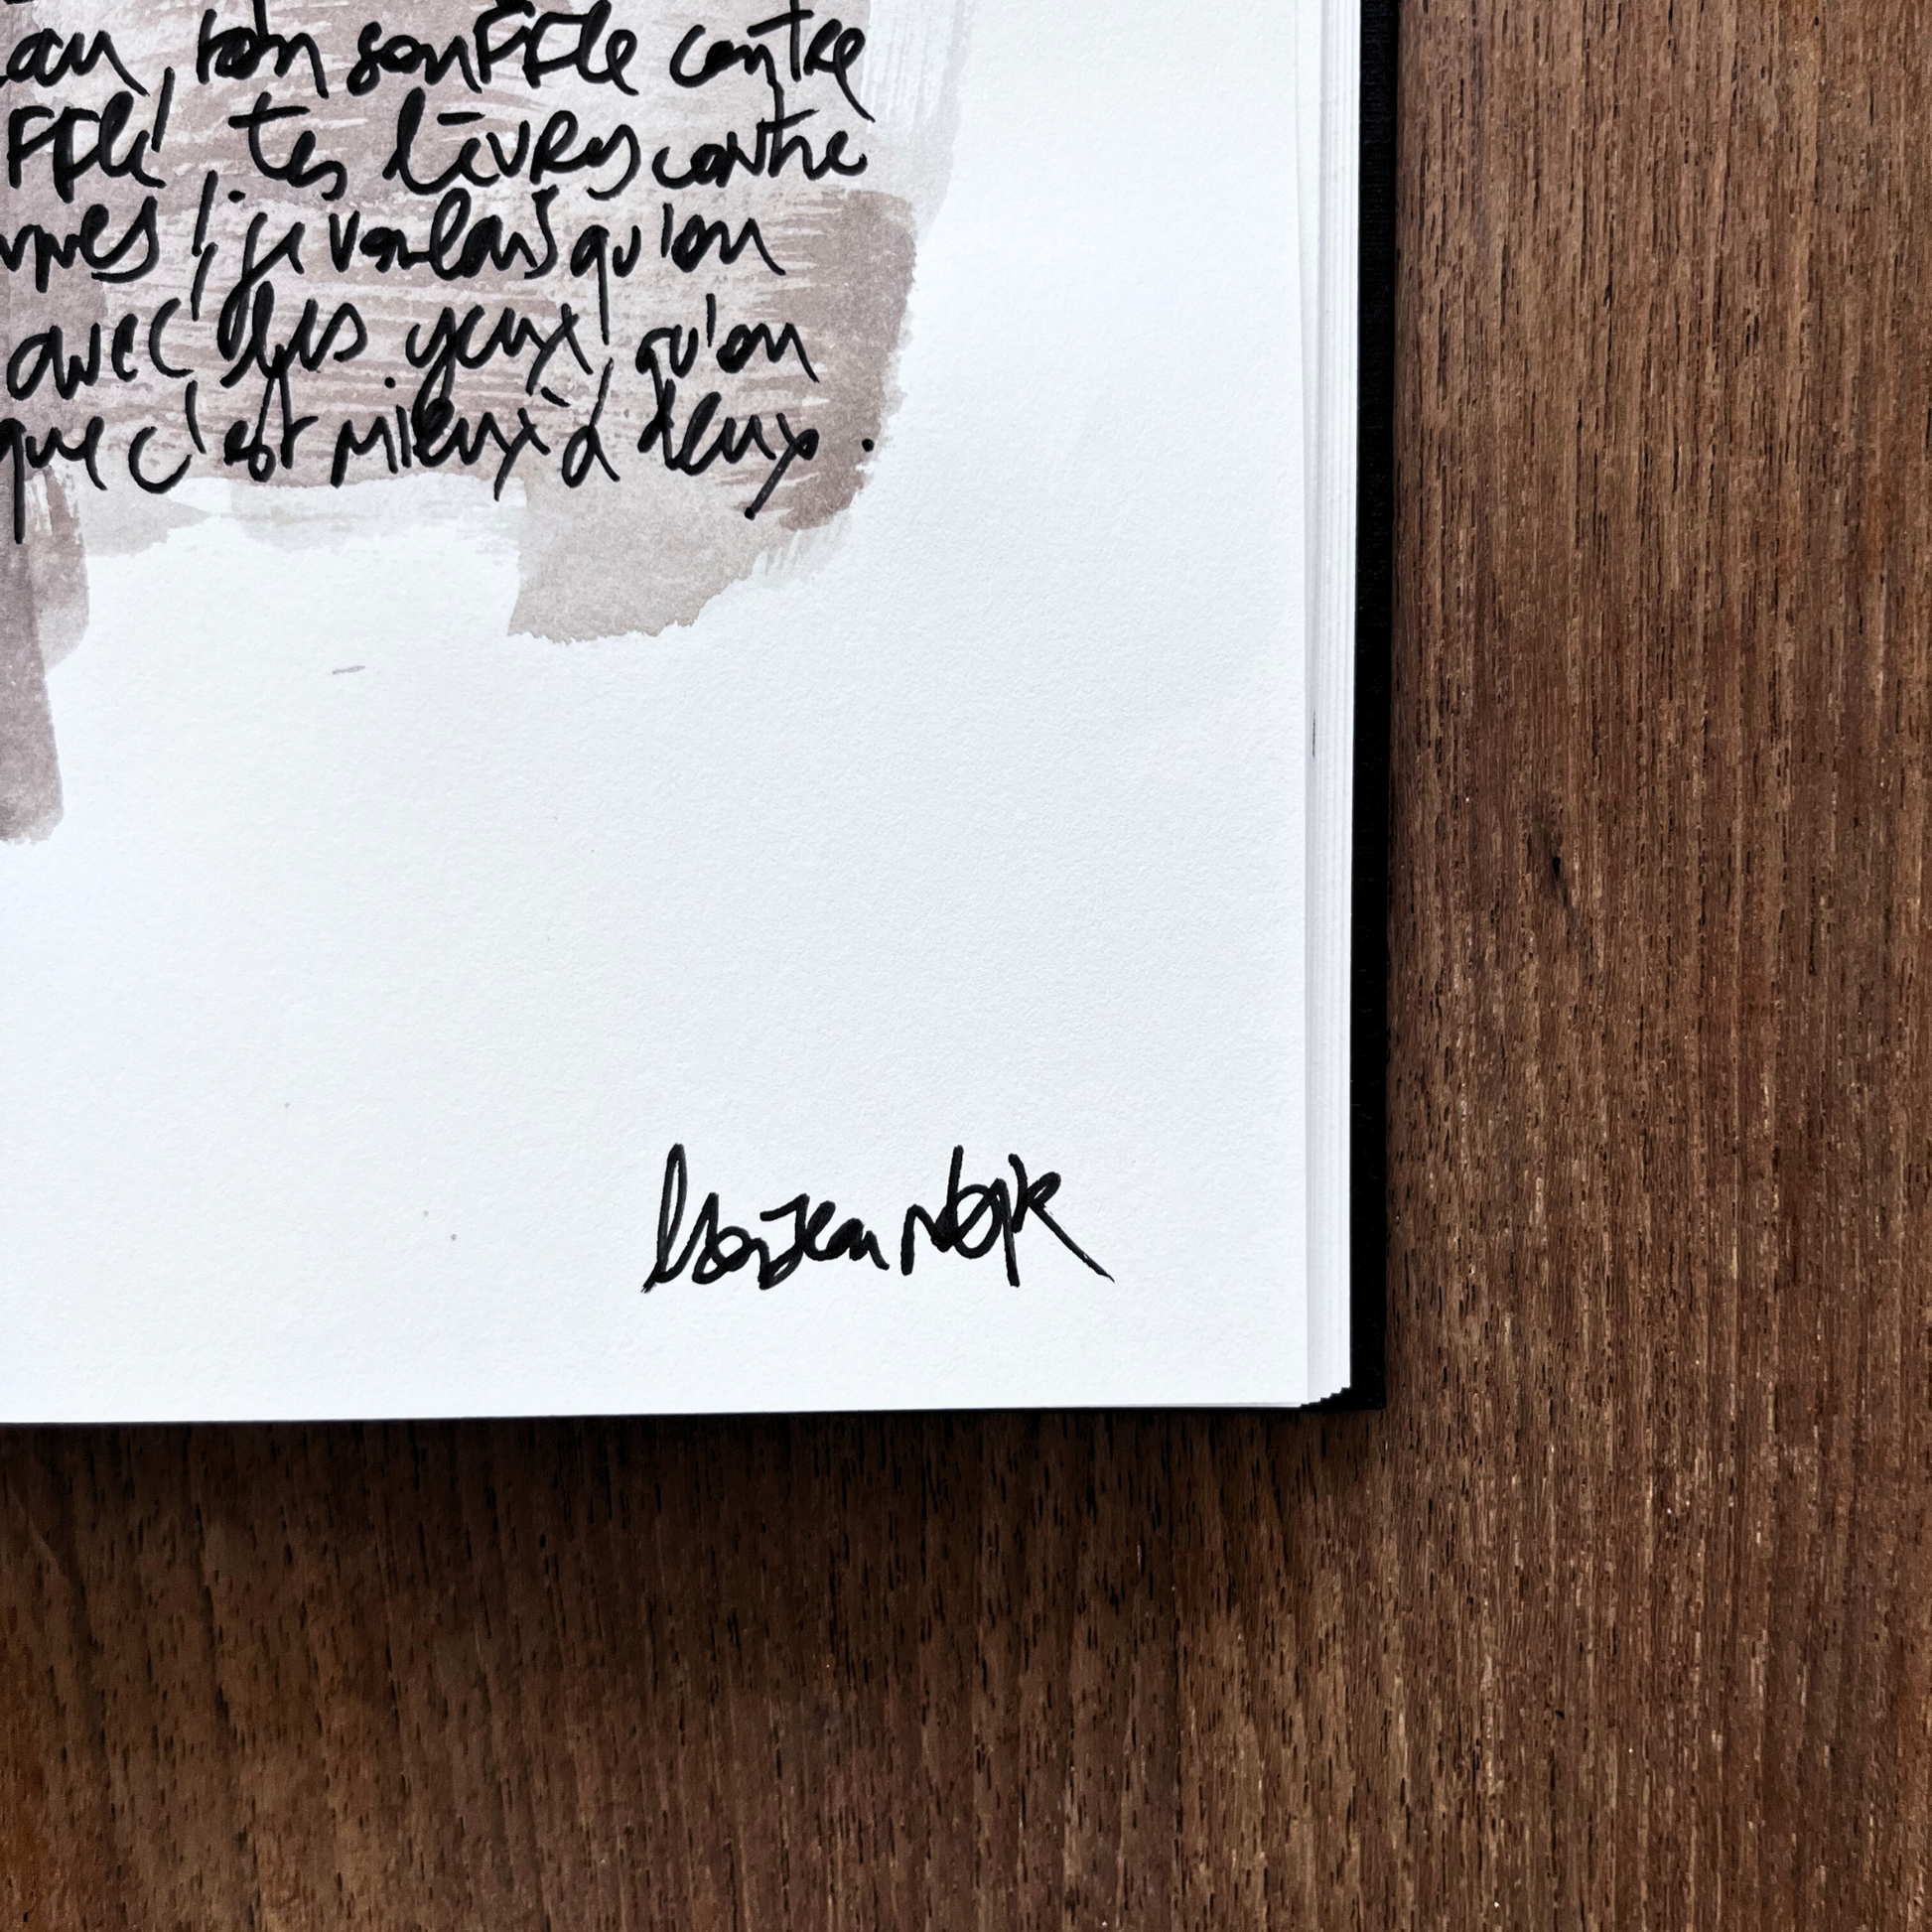 , ton souffle contre
, tes lèvres contre
, je voulais qu'on
avec des yeux, qu'on
que c'est mieux à deux.